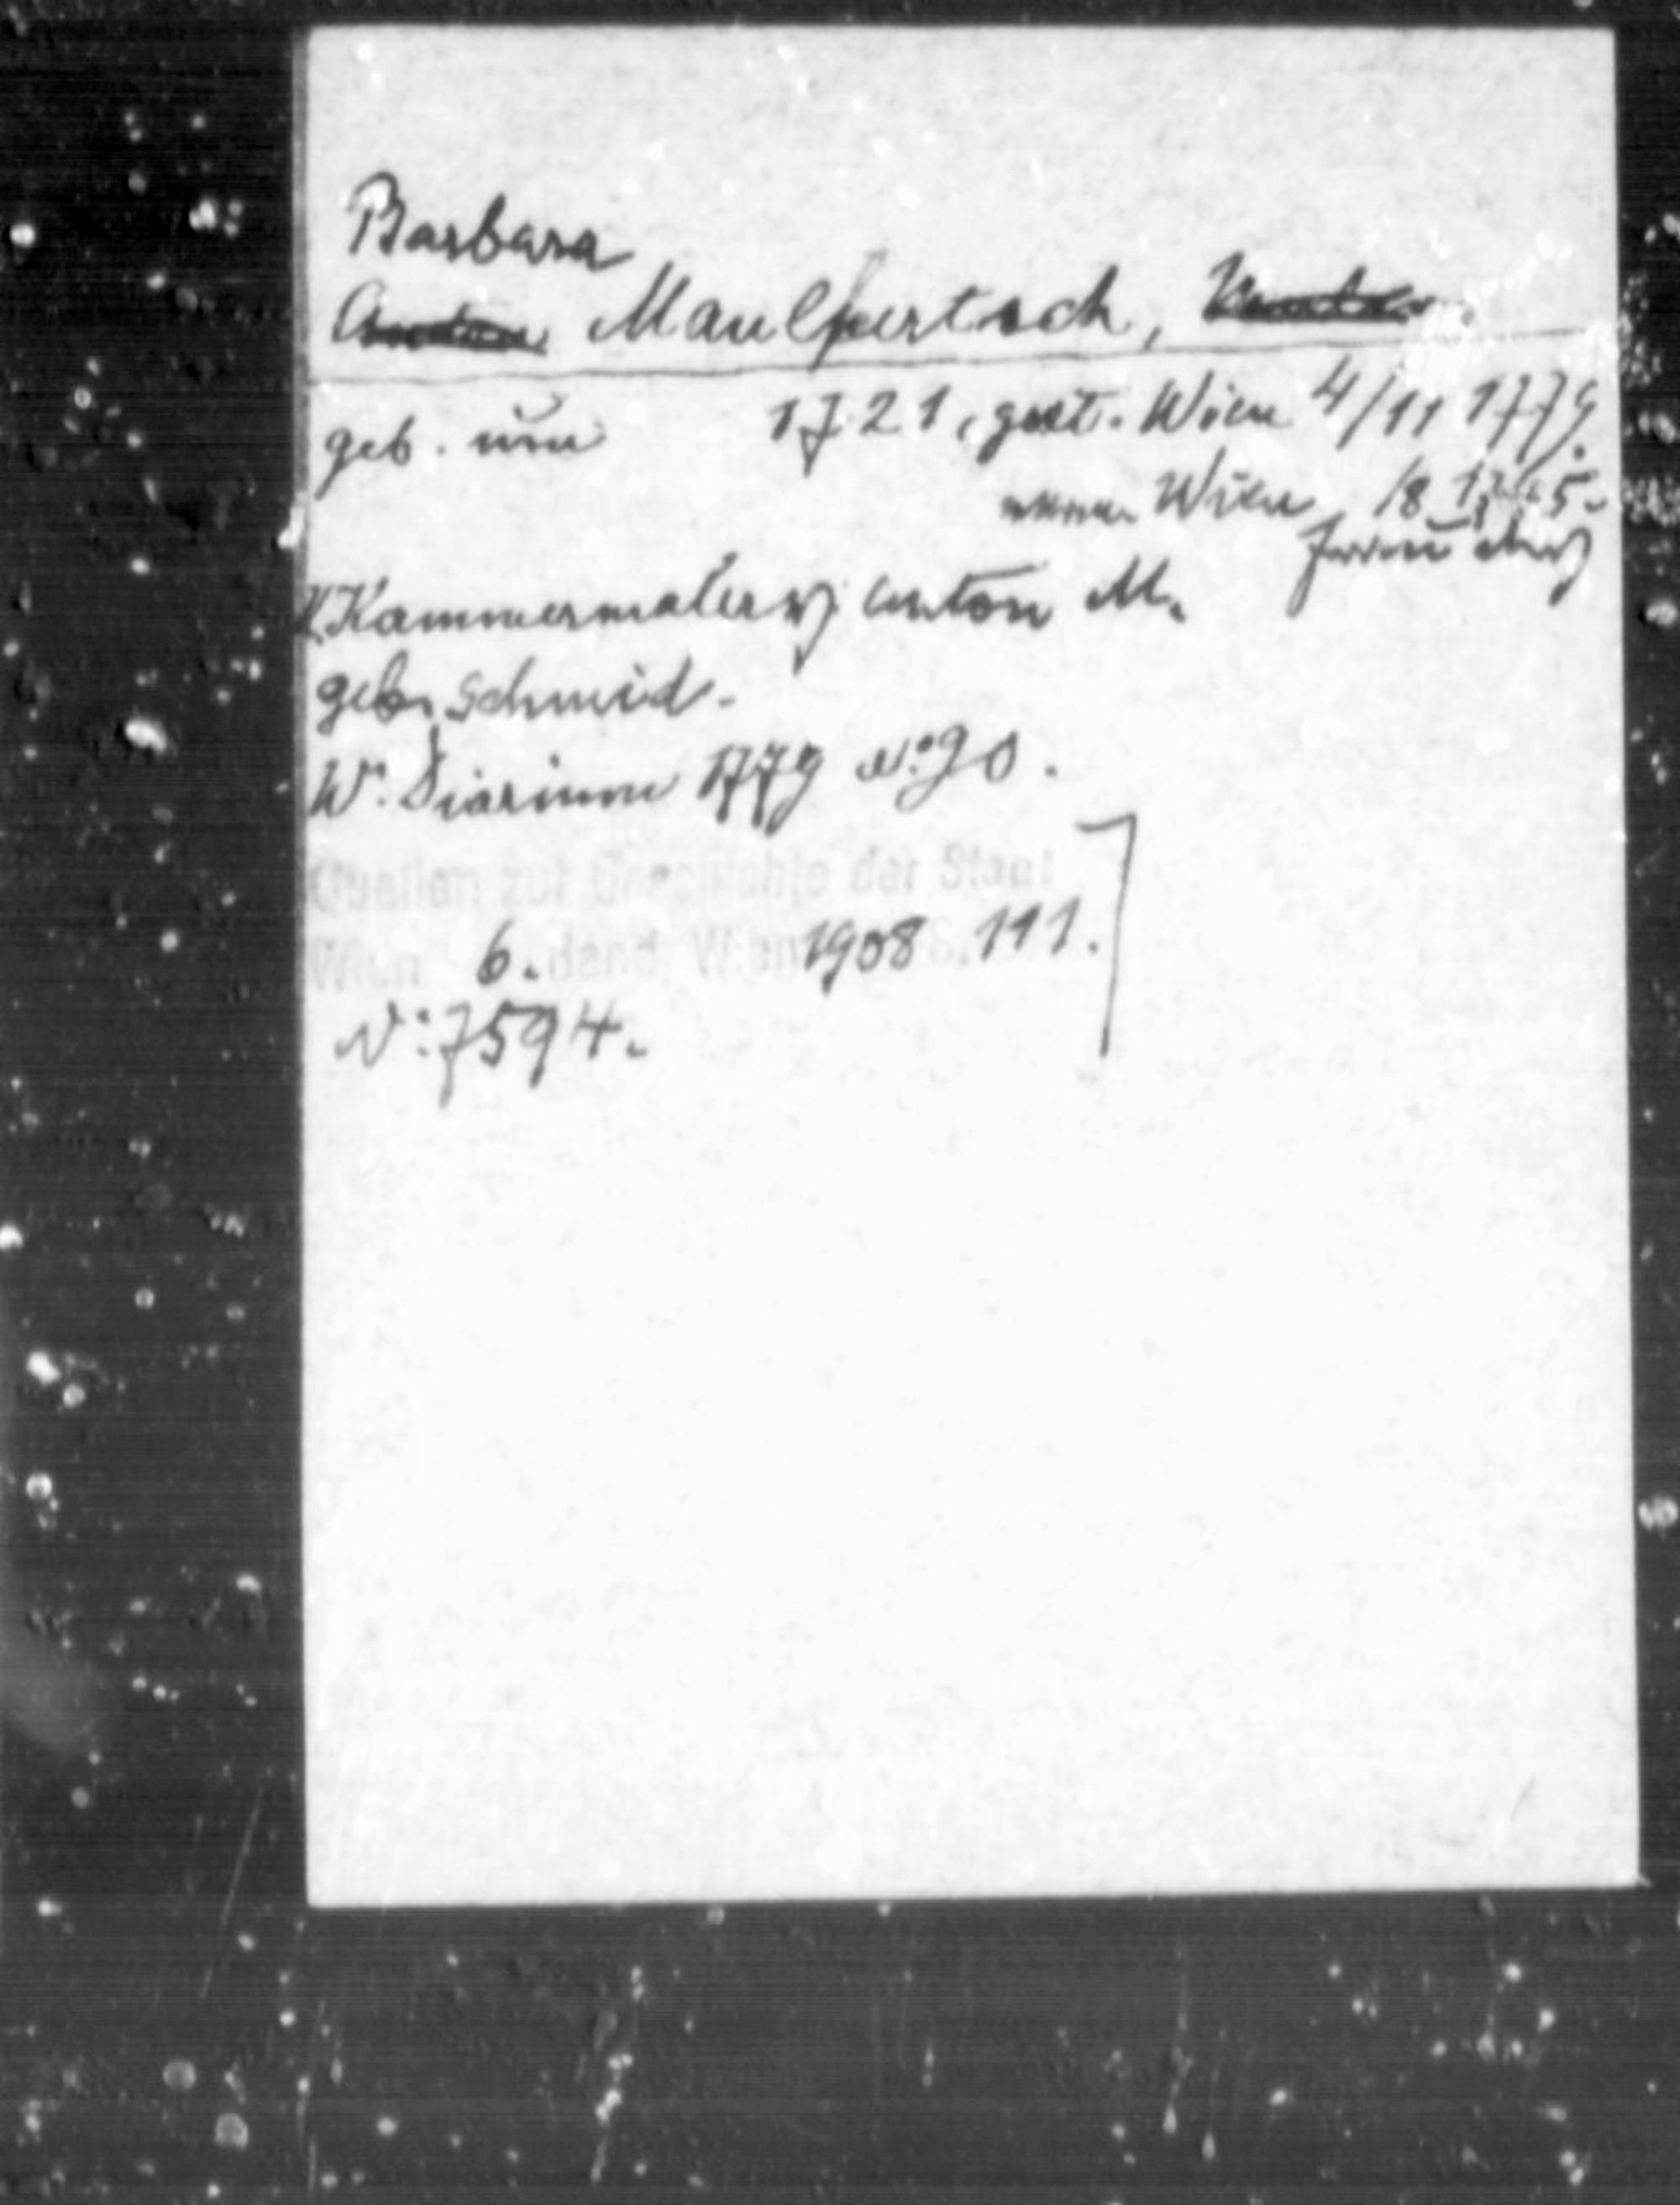 Barbara
Anton Maulpertsch,
geb. um 1721, gest. Wien 4/11 1779.
Wien 18 1745.
Frau des
K Kammermalers Anton M.
geb. Schmid.
W. Diarium 1779 No 90.
Quellen zur Geschichte der Stadt
Wien 6. Band Wien 1908 S. 111.
No: 7594.